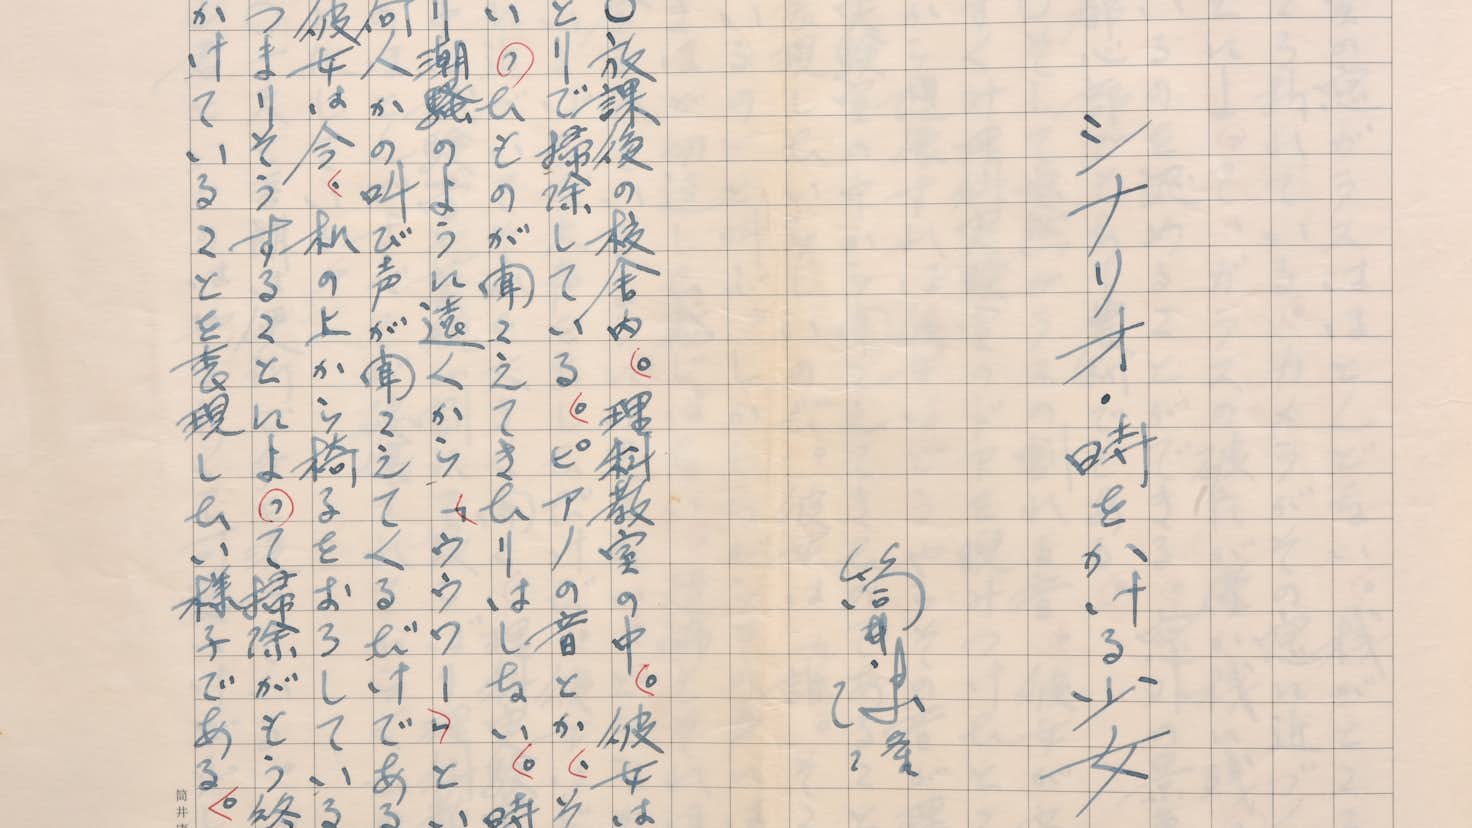 シナリオ・時をかける少女
筒井康隆
○放課後の校舎内。理科教室の中。彼女は
とりで掃除している。ピアノの音とか、そ
いったものが聞こえてきたりはしない。時
り潮騒のように遠くから「ウウウワー」とい
何人かの叫び声が聞こえてくるだけである
彼女は今、机の上から椅子をおろしている
つまりそうすることによって掃除がもう終
かけていることを表現したい様子である。
筒井